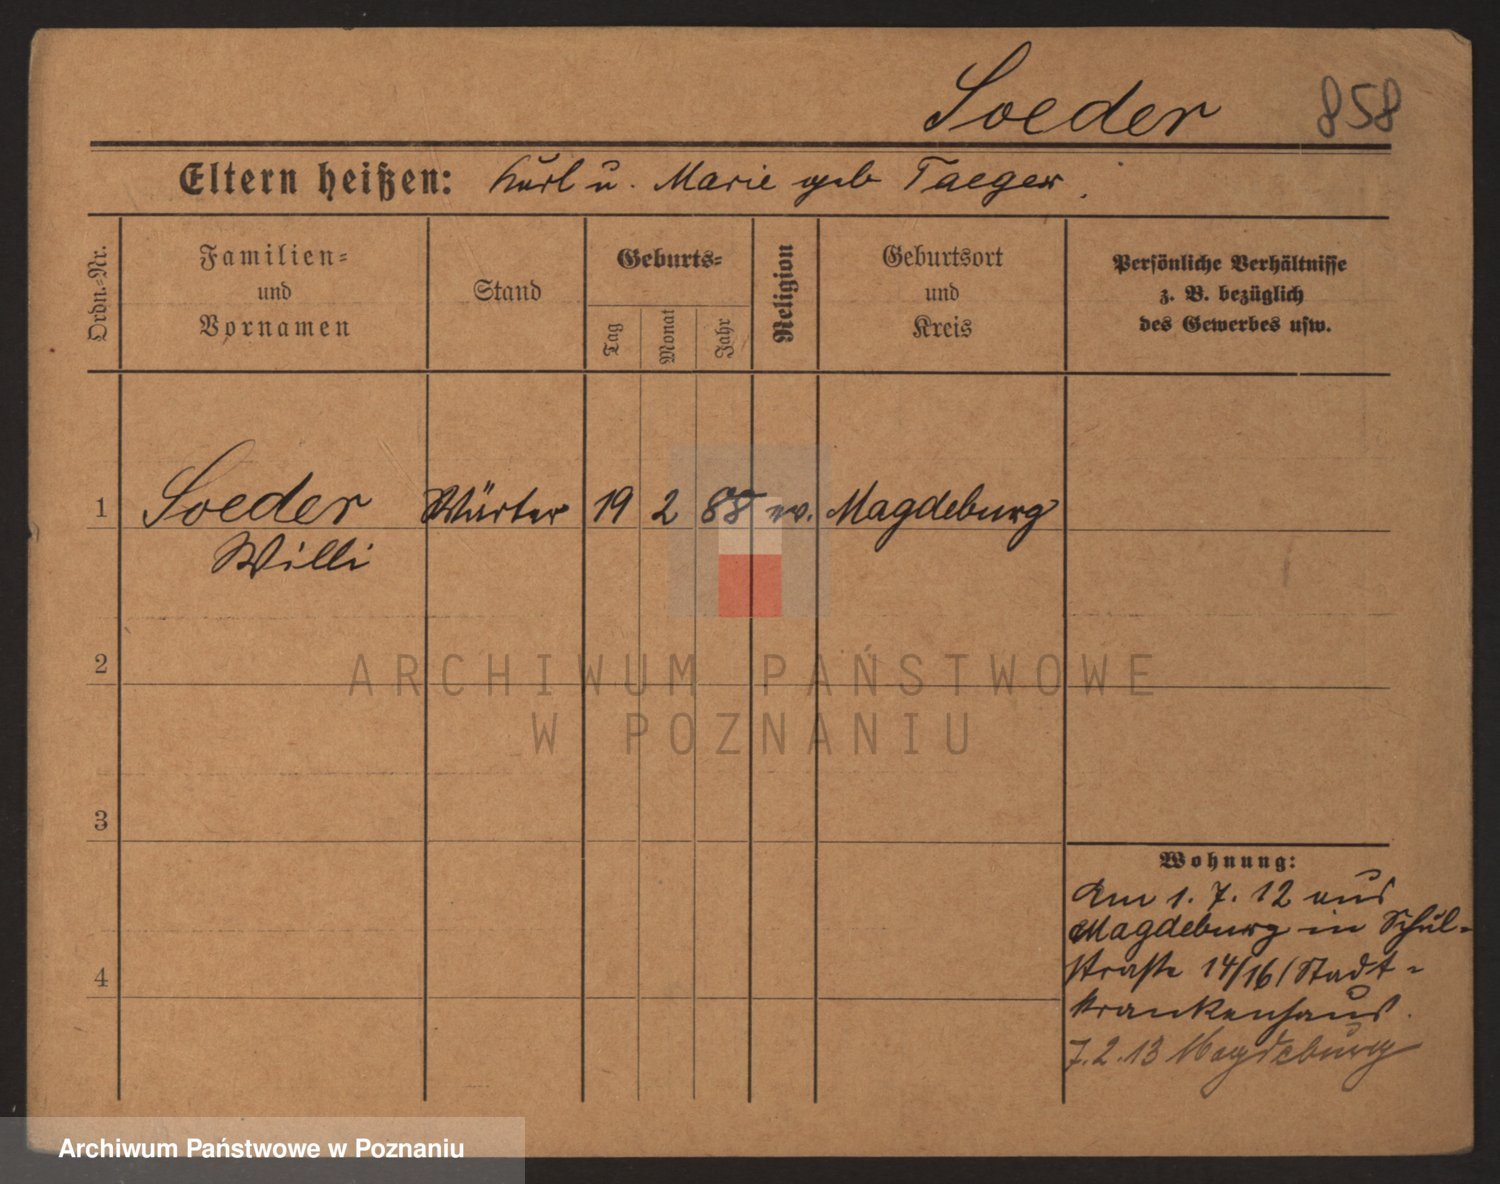 Soeder 858
Eltern heißen: Karl u. Marie geb Taeger.
Ordn.-Nr.
Familien-
und
Vornamen
Stand
Geburts-
Tag
Monat
Jahr
Religion
Geburtsort
und
Kreis
Persönliche Verhältnisse
z. B. bezüglich
des Gewerbes usw.
1 Soeder Wärter 19 2 88 ev. Magdeburg
Willi
2
3
4
Wohnung:
Am 1. 7. 12 aus
Magdeburg in Schul-
straße 14/16 / Stadt-
krankenhaus.
7.2.13 Magdeburg
ARCHIWUM PAŃSTWOWE
W POZNANIU
Archiwum Państwowe w Poznaniu